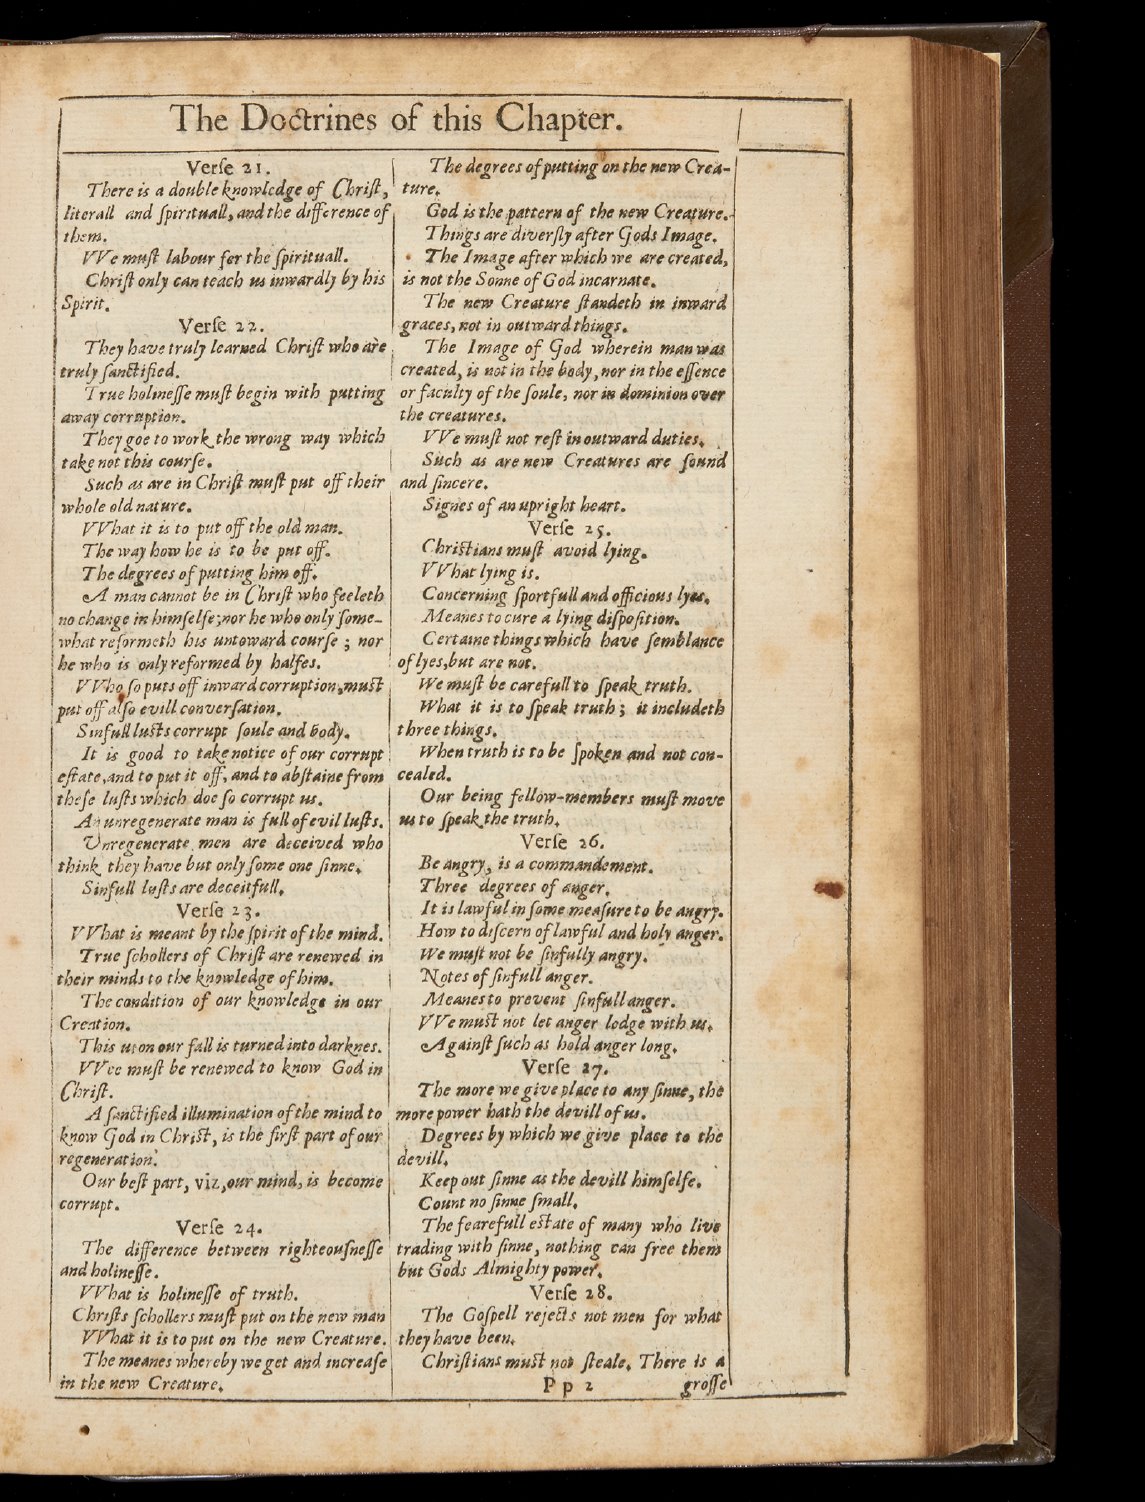 The Doctrines of this Chapter.
Verſe 21.
There is a double knowledge of Chriſt,
literall and ſpirituall, and the difference of
them.
VVe muſt labour for the ſpirituall.
Chriſt only can teach us inwardly by his
Spirit.
Verſe 22.
They have truly learned Chriſt who are
truly ſanctified.
True holineſſe muſt begin with putting
away corruption.
They goe to work the wrong way which
take not this courſe.
Such as are in Chriſt muſt put off their
whole old nature.
VVhat it is to put off the old man.
The way how he is to be put off.
The degrees of putting him off.
A man cannot be in Chriſt who feeleth
no change in himſelfe; nor he who only ſome-
what reformeth his untoward courſe ; nor
he who is only reformed by halfes.
VVho ſo puts off inward corruption, muſt
put off alſo evill converſation.
Sinfull luſts corrupt ſoule and body.
It is good to take notice of our corrupt
eſtate, and to put it off, and to abſtaine from
theſe luſts which doe ſo corrupt us.
An unregenerate man is full of evil luſts.
Unregenerate men are deceived who
think they have but only ſome one ſinne.
Sinfull luſts are deceitfull.
Verſe 23.
VVhat is meant by the ſpirit of the mind.
True ſchollers of Chriſt are renewed in
their minds to the knowledge of him.
The condition of our knowledge in our
Creation.
This upon our fall is turned into darknes.
VVee muſt be renewed to know God in
Chriſt.
A ſanctified illumination of the mind to
know God in Chriſt, is the firſt part of our
regeneration.
Our beſt part, viz, our mind, is become
corrupt.
Verſe 24.
The difference between righteouſneſſe
and holineſſe.
VVhat is holineſſe of truth.
Chriſts ſchollers muſt put on the new man
VVhat it is to put on the new Creature.
The meanes whereby we get and increaſe
in the new Creature.
The degrees of putting on the new Crea-
ture.
God is the pattern of the new Creature.
Things are diverſly after Gods Image.
The Image after which we are created,
is not the Sonne of God incarnate.
The new Creature ſtandeth in inward
graces, not in outward things.
The Image of God wherein man was
created, is not in the body, nor in the eſſence
or faculty of the ſoule, nor in dominion over
the creatures.
VVe muſt not reſt in outward duties.
Such as are new Creatures are ſound
and ſincere.
Signes of an upright heart.
Verſe 25.
Chriſtians muſt avoid lying.
VVhat lying is.
Concerning ſportfull and officious lyes.
Meanes to cure a lying diſpoſition.
Certaine things which have ſemblance
of lyes, but are not.
We muſt be carefull to ſpeak truth.
What it is to ſpeak truth ; it includeth
three things.
When truth is to be ſpoken and not con-
cealed.
Our being fellow-members muſt move
us to ſpeak the truth.
Verſe 26.
Be angry, is a commandement.
Three degrees of anger.
It is lawful in ſome meaſure to be angry.
How to diſcern of lawful and holy anger.
We muſt not be ſinfully angry.
Notes of ſinfull anger.
Meanes to prevent ſinfull anger.
VVe muſt not let anger lodge with us.
Againſt ſuch as hold anger long.
Verſe 27.
The more we give place to any ſinne, the
more power hath the devill of us.
Degrees by which we give place to the
devill.
Keep out ſinne as the devill himſelfe.
Count no ſinne ſmall.
The fearefull eſtate of many who live
trading with ſinne, nothing can free them
but Gods Almighty power.
Verſe 28.
The Goſpell rejects not men for what
they have been.
Chriſtians muſt not ſteale. There is a
P p 2 groſſe